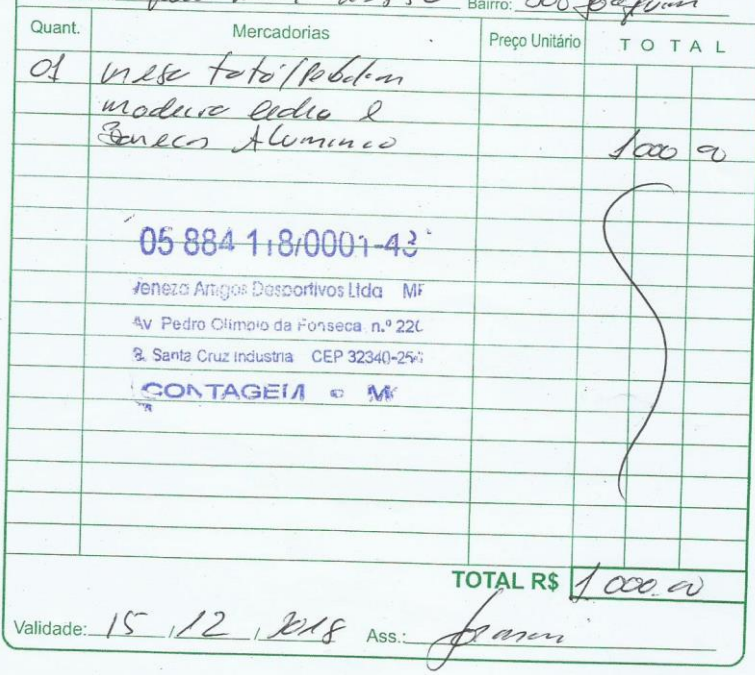 Bairro: São Joaquim
Quant. Mercadorias Preço Unitário TOTAL
01 mesa totó/
madeira cedro e
Bonecos Aluminio 1000 00
05 884 118/0001-43
Veneza Artigos Desportivos Ltda ME
Av Pedro Olimpio da Fonseca n.º 220
B. Santa Cruz Industria CEP 32340-
CONTAGEM - MG
TOTAL R$ 1 000.00
Validade: 15 / 12 / 2018 Ass.: